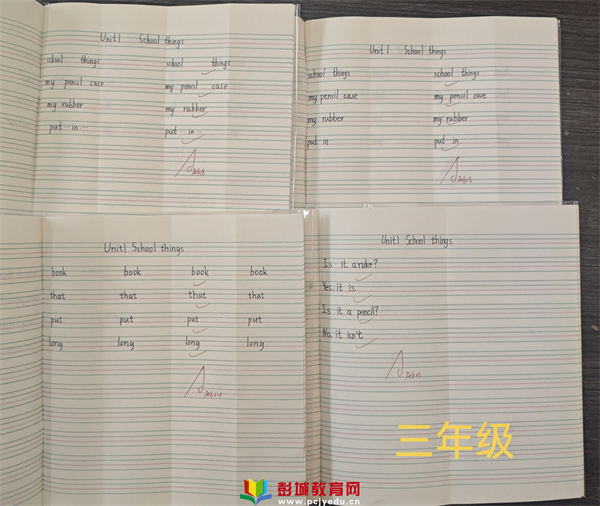 Unit1 School things
school things school things
my pencil case my pencil case
my rubber my rubber
put ··· in ··· put in ···
Unit1 School things
school things school things
my pencil case my pencil case
my rubber my rubber
put in put in
Unit1 School things
book book book book
that that that that
put put put put
long long long long
Unit1 School things
Is it a ruler?
Yes, it is.
Is it a pencil?
No, it isn't.
三年级
彭城教育网
www.pcjyedu.cn